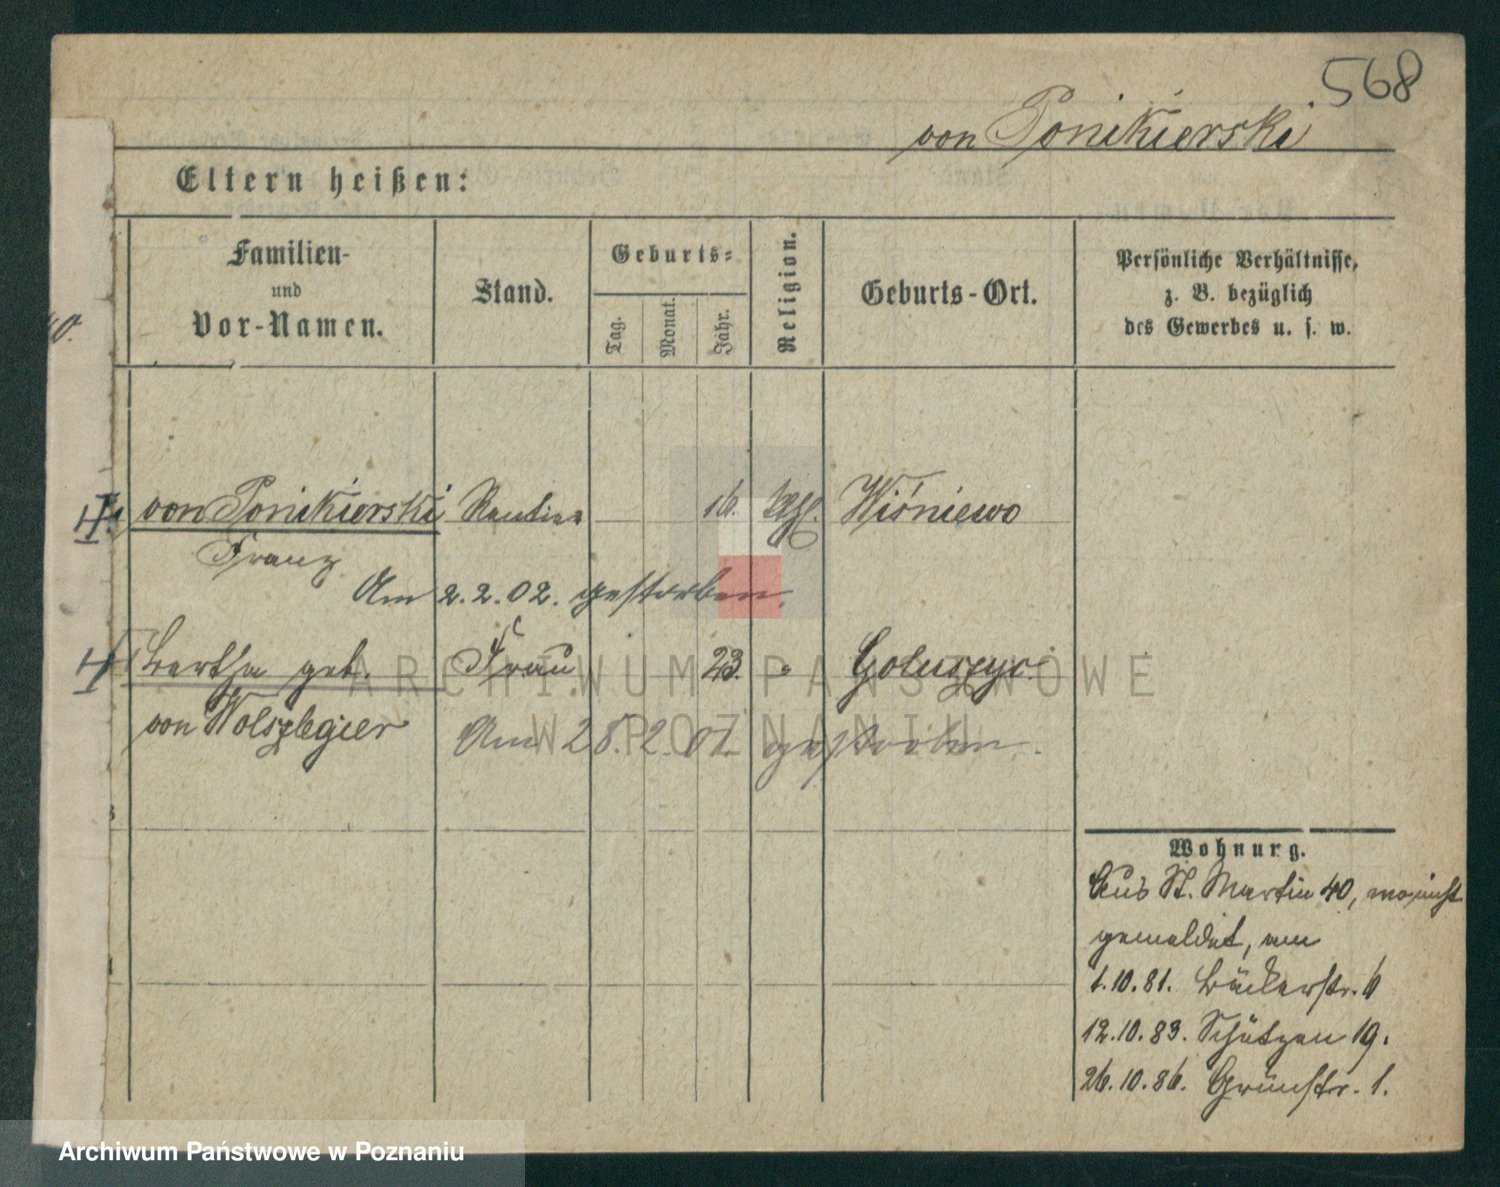 568
von Ponikierski
Eltern heißen:
Familien-
und
Vor-Namen.
Stand.
Geburts-
Tag.
Monat.
Jahr.
Religion.
Geburts-Ort.
Persönliche Verhältnisse,
z. B. bezüglich
des Gewerbes u. s. w.
von Ponikierski Rentier 16. kath. Wiśniewo
Franz
Am 2.2.02. gestorben.
Bertha geb. Frau 23. " Goluszyce
von Wolszlegier Am 28.2.01 gestorben.
Wohnung.
Aus St. Martin 40, wo nicht
gemeldet, am
1.10.81. Bäckerstr. 6
12.10.83. Schützen 19.
26.10.86. Grünstr. 1.
ARCHIWUM PAŃSTWOWE
W POZNANIU
Archiwum Państwowe w Poznaniu